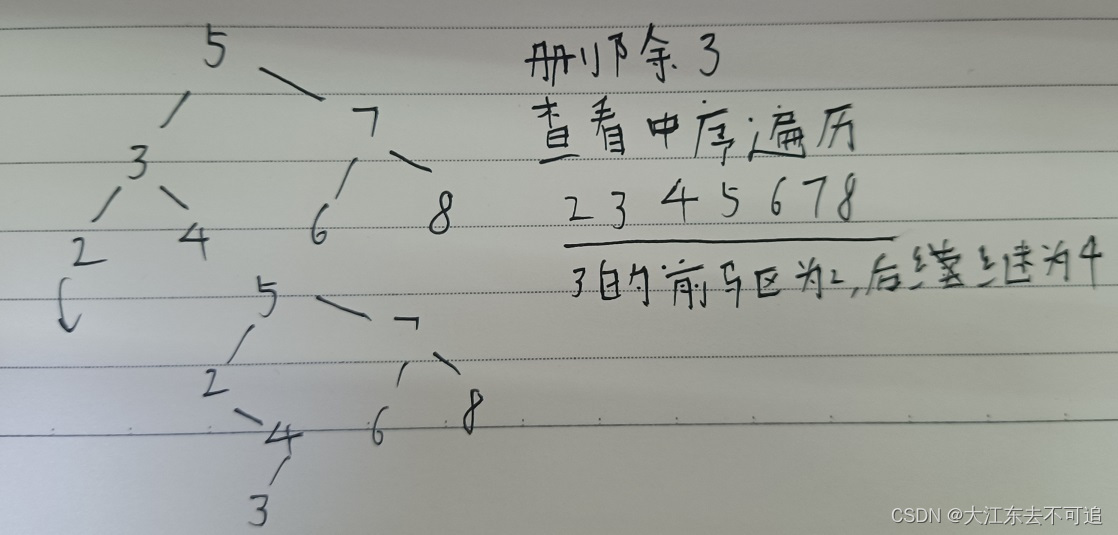 5
7
3
6 8
2 4
删除3
查看中序遍历
2 3 4 5 6 7 8
3的前驱为2,后继为4
5
7
2
4 6 8
3
CSDN @大江东去不可追